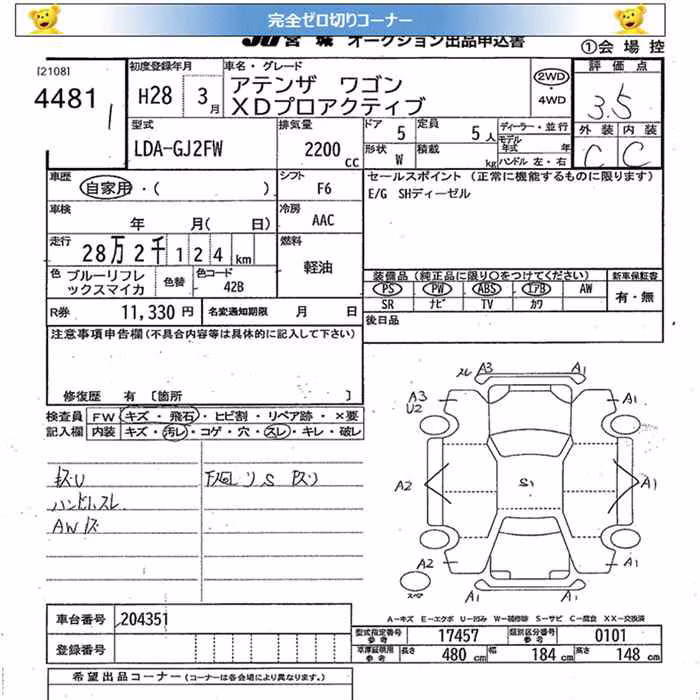 完全ゼロ切りコーナー
JU宮城 オークション出品申込書
①会場控
[2108]
4481
初度登録年月
H28 3月
車名・グレード
アテンザ ワゴン
XDプロアクティブ
2WD・4WD
評価点
3.5
外装 内装
C C
型式
LDA-GJ2FW
排気量
2200cc
ドア 5
定員 5人
形状 W
積載 kg
ディーラー・並行
モデル年式 年
ハンドル 左・右
車歴
自家用・( )
シフト
F6
セールスポイント (正常に機能するものに限ります)
E/G SHディーゼル
車検
年 月( 日)
冷房
AAC
走行
28万2千124km
燃料
軽油
色 ブルーリフレックスマイカ
色替
色コード
42B
装備品(純正品に限り○をつけてください)
新車保証書
PS PW ABS エアB AW
SR ナビ TV カワ
有・無
R券 11,330円
名変通知期限 月 日
後日品
注意事項申告欄(不具合内容等は具体的に記入して下さい)
修復歴 有 [箇所 ]
検査員記入欄
FW キズ・飛石・ヒビ割・リペア跡・×要
内装 キズ・汚レ・コゲ・穴・スレ・キレ・破レ
キズU
ハンドルスレ
AWキズ
下回リS
A3 A1
A3
U2
A1
A2
S1
A1
A2
A1
スペア
A2 A1
A-キズ E-エクボ U-凹み W-補修跡 S-サビ C-腐食 XX-交換済
車台番号 204351
登録番号
型式指定番号参考 17457
類別区分番号参考 0101
車庫証明用参考 長さ 480cm 幅 184cm 高さ 148cm
希望出品コーナー(コーナーは各会場により異なります。)